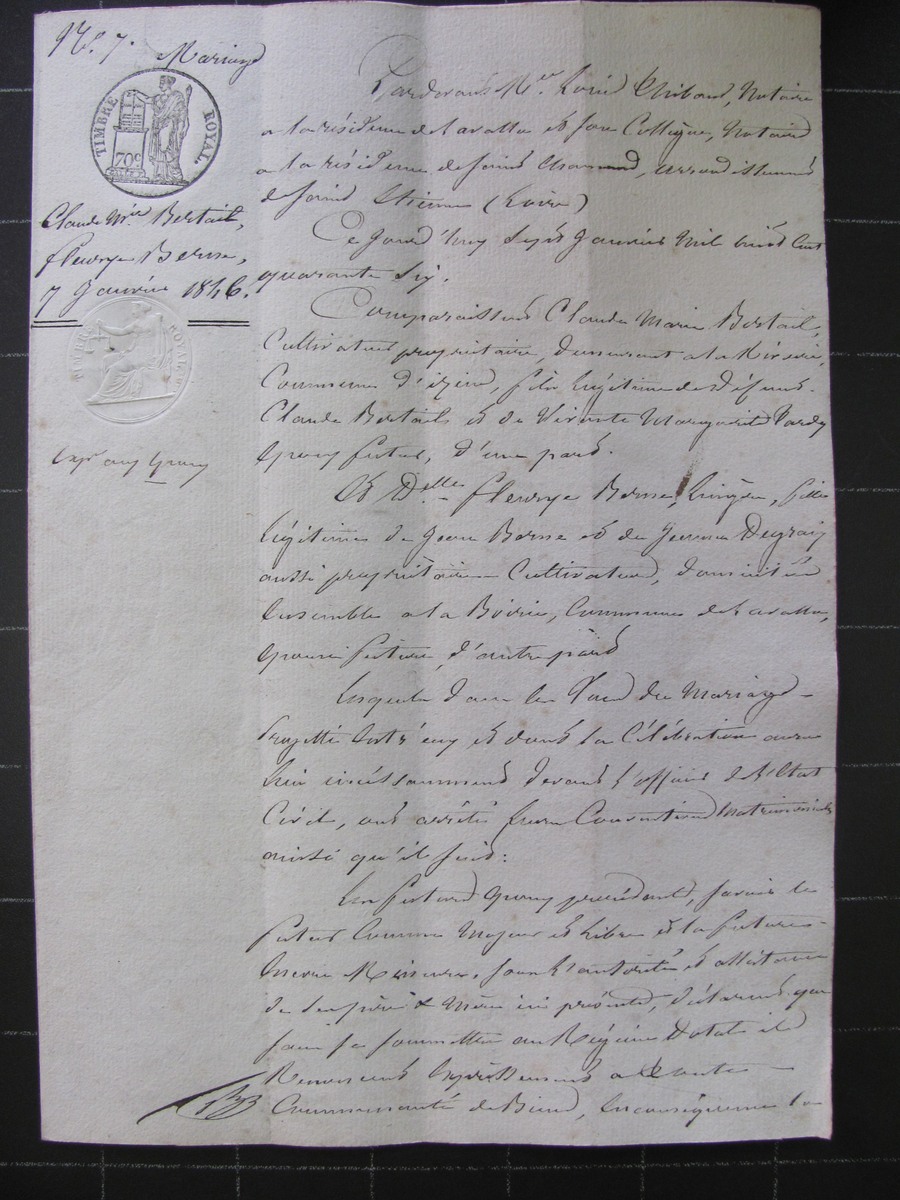 N.° 7. Mariage
TIMBRE ROYAL.
70c
Claude M.ie Bertail,
fleurye Berne,
7 Janvier 1846.
TIMBRE ROYAL
Exp.on aux Epoux
Pardevant M.e Louis Thibaud, Notaire
a la résidence de Lavalla et son Collègue, Notaire
a la résidence de saint Chamond, arrondissement
de saint Etienne (Loire)
Ce Jourd'huy sept Janvier mil huit cent
quarante six.
Comparaissent Claude Marie Bertail,
Cultivateur propriétaire, demeurant a la
Commune d'izieu, fils légitime de défunt
Claude Bertail et de vivante Marguerite Tardy
Epoux futur, d'une part.
Et D.elle fleurye Berne, Lingère, fille
légitime de Jean Berne et de Jeanne Degraix
aussi propriétaire Cultivateur, domiciliée
ensemble a la Commune de Lavalla,
Epouse future, d'autre part
Lesquels dans la vue du Mariage
Projetté entr'eux et dont la Célébration aura
lieu incéssamment devant l'officier de l'Etat
Civil, ont arrêté leurs Conventions Matrimoniales
ainsi qu'il suit:
Les futurs Epoux procédant, savoir le
futur Comme Majeur et libre et la future
Comme Mineure, sous l'autorité, et assistance
de ses père & Mère ici présents, déclarent que
pour se soumettre au Régime Dotal et
Renoncent Expressément a toute
Communauté de Biens, En conséquence la